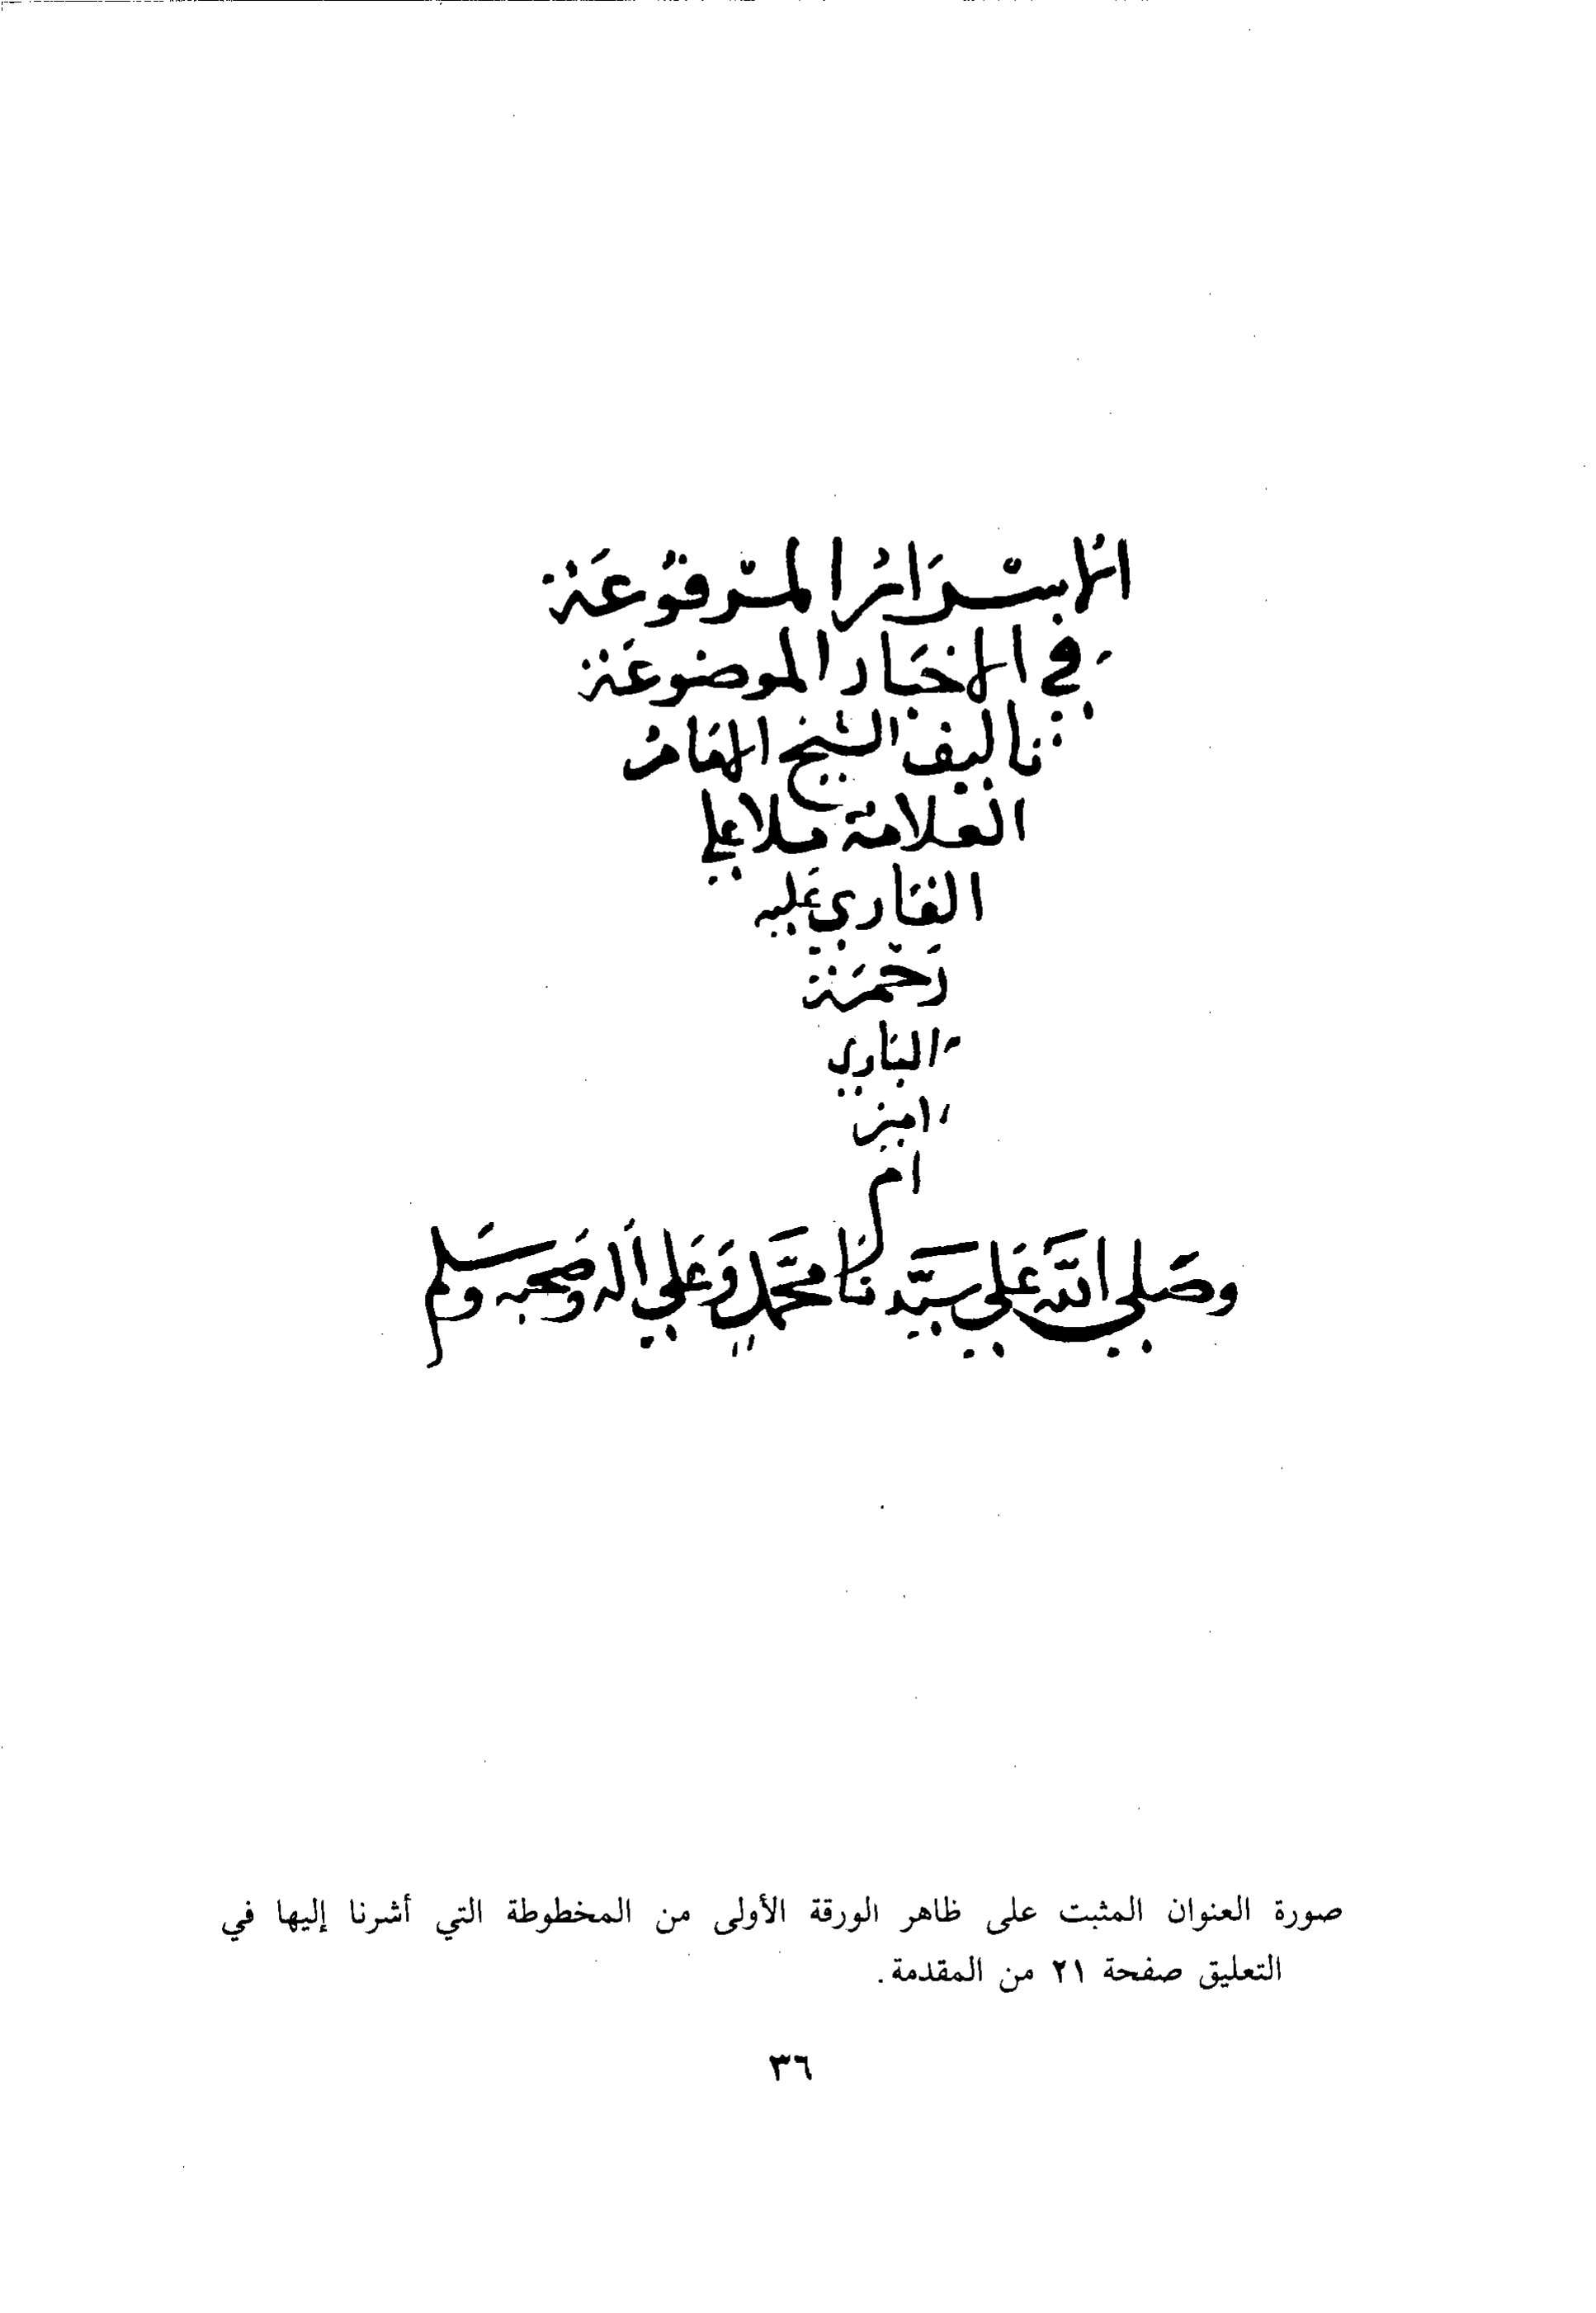 الاسرار المرفوعة
في الاخبار الموضوعة
تاليف الشيخ الهمام
العلامة ملا علي
القاري عليه
رحمة
الباري
امين
ام
وصلي الله علي سيدنا محمد وعلي اله وصحبه وسلم
صورة العنوان المثبت على ظاهر الورقة الأولى من المخطوطة التي أشرنا إليها في
التعليق صفحة ٢١ من المقدمة.
٣٦